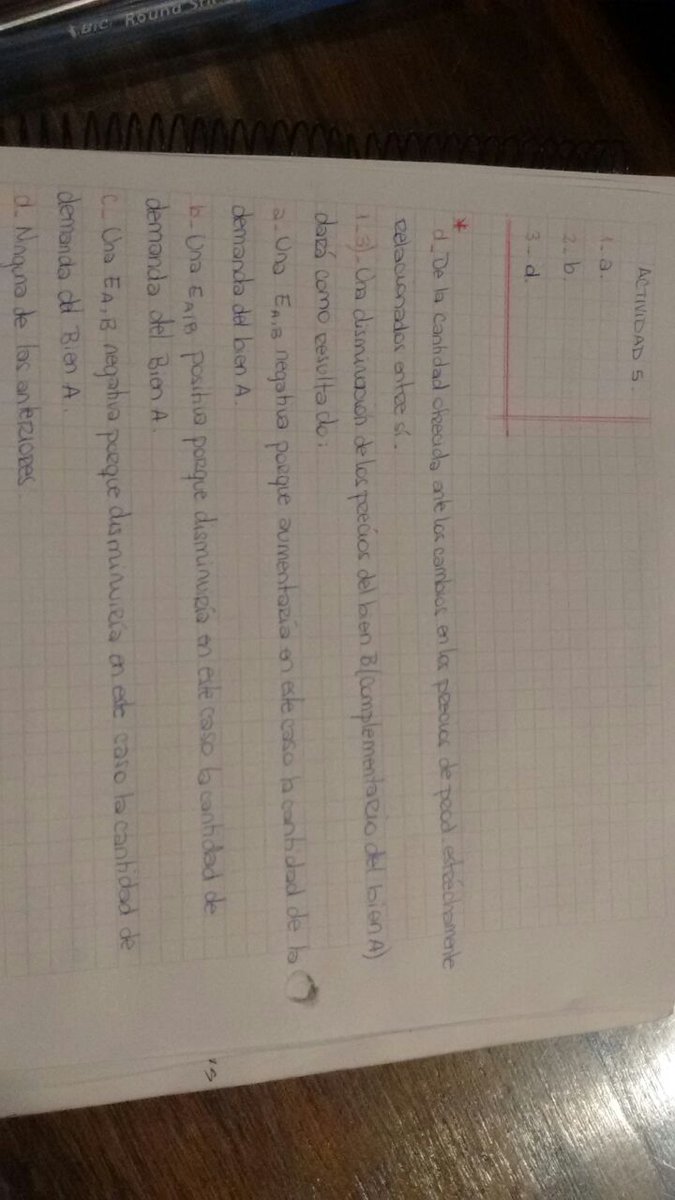 BIC. Round Stic
ACTIVIDAD 5.
1.- a.
2.- b.
3.- d.
* d_ De la cantidad ofrecida ante los cambios en los precios de prod. estrechamente
relacionados entre sí.
1.3)- Una disminución de los precios del bien B (complementario del bien A)
dará como resultado:
a_ Una EA,B negativa porque aumentaría en este caso la cantidad de la
demanda del bien A.
b- Una EA,B positiva porque disminuiría en este caso la cantidad de
demanda del Bien A.
C_ Una EA,B negativa porque disminuiría en este caso la cantidad de
demanda del Bien A.
d_ Ninguna de las anteriores.